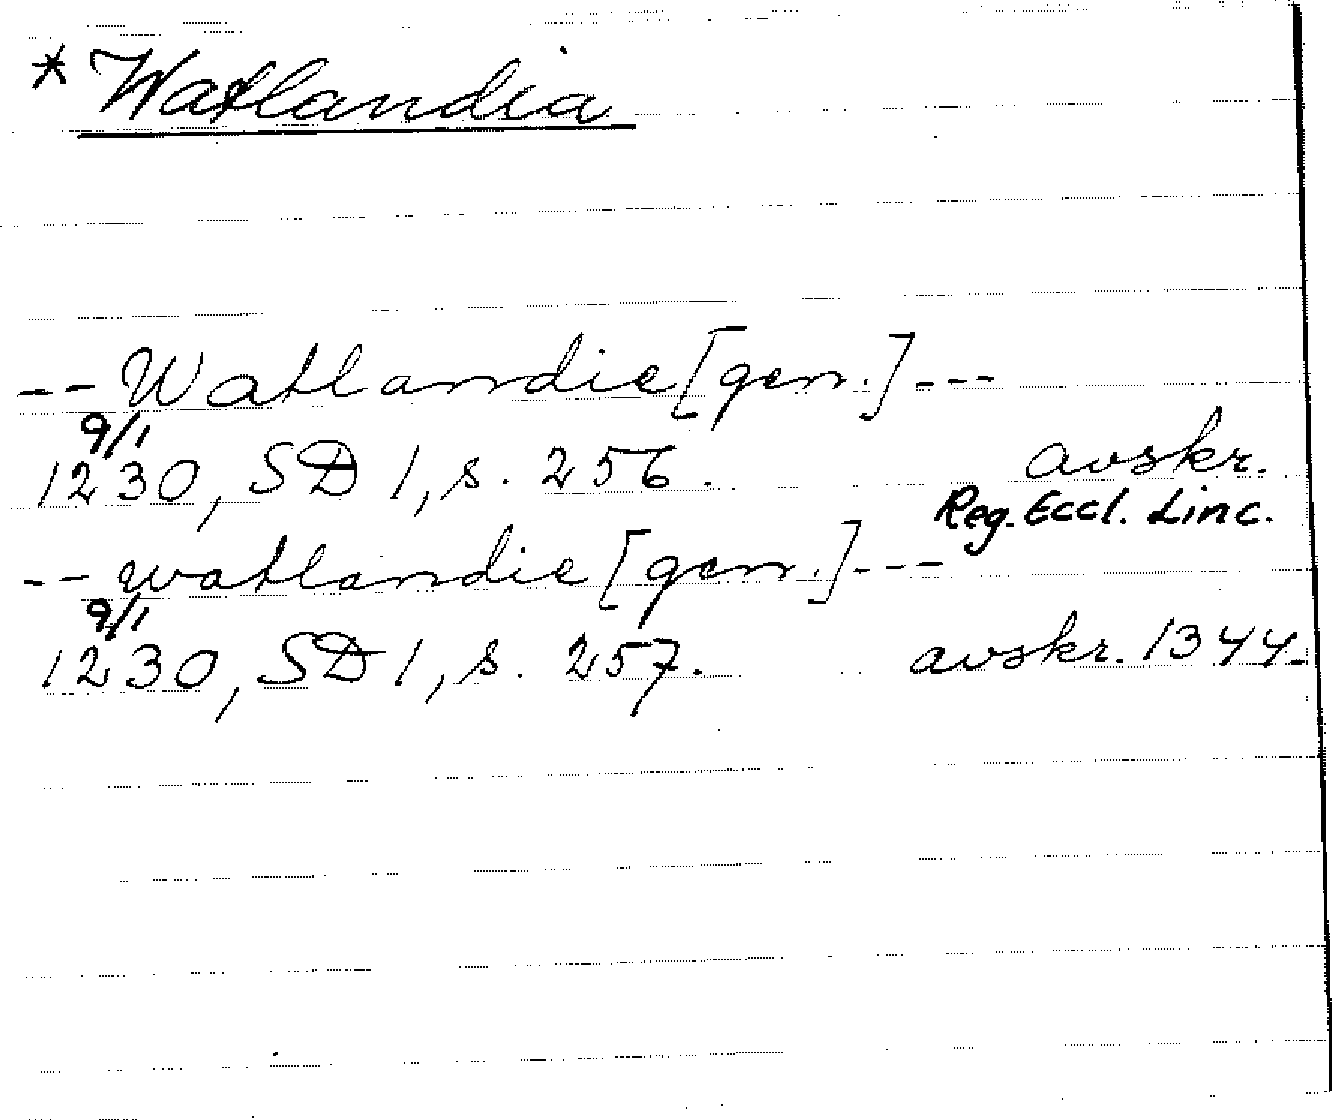 * Watlandia
-- Watlandie [gen.] ---
9/1
1230, SD 1, s. 256. avskr.
Reg. Eccl. Linc.
-- watlandie [gen.] ---
9/1
1230, SD 1, s. 257. avskr. 1344.